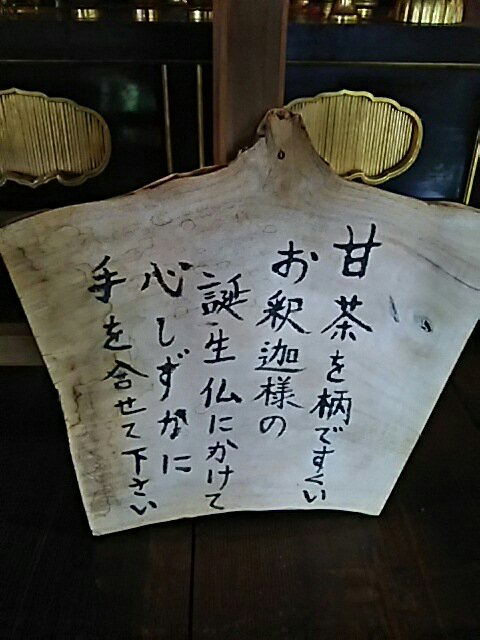 甘茶を柄ですくい
お釈迦様の
誕生仏にかけて
心しずかに
手を合せて下さい